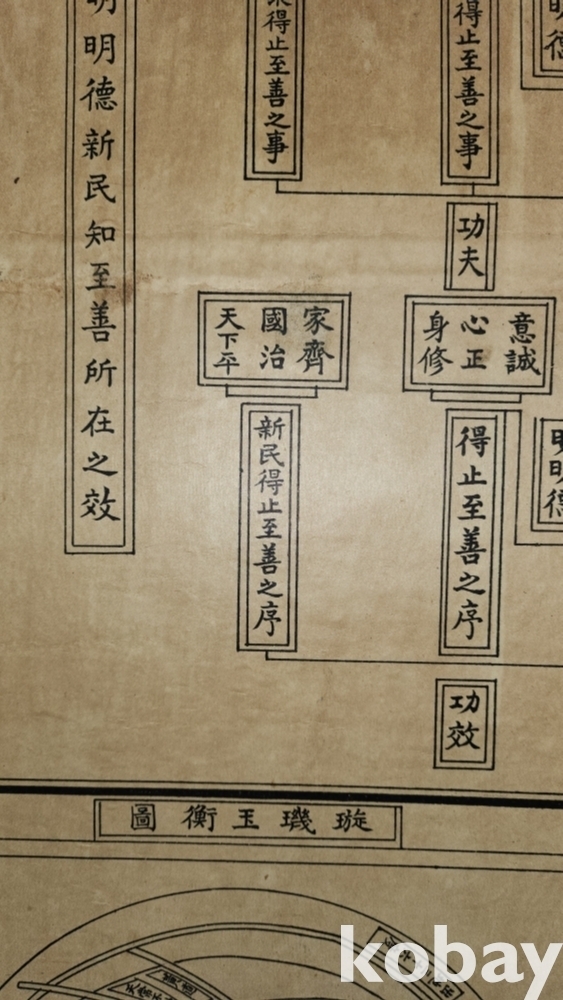 明德
得止至善之事
得止至善之事
功夫
意誠
心正
身修
家齊
國治
天下平
明明德
得止至善之序
新民得止至善之序
功效
明明德新民知至善所在之效
璇璣玉衡圖
kobay